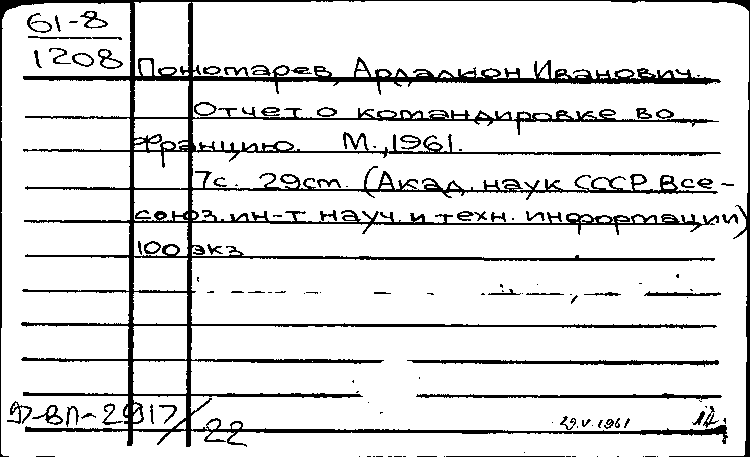 61-8
1208
Пономарев, Ардалион Иванович.
Отчет о командировке во
Францию. М., 1961.
7с. 29см. (Акад. наук СССР. Все-
союз. ин-т науч. и техн. информации)
100 экз
29.V.1961